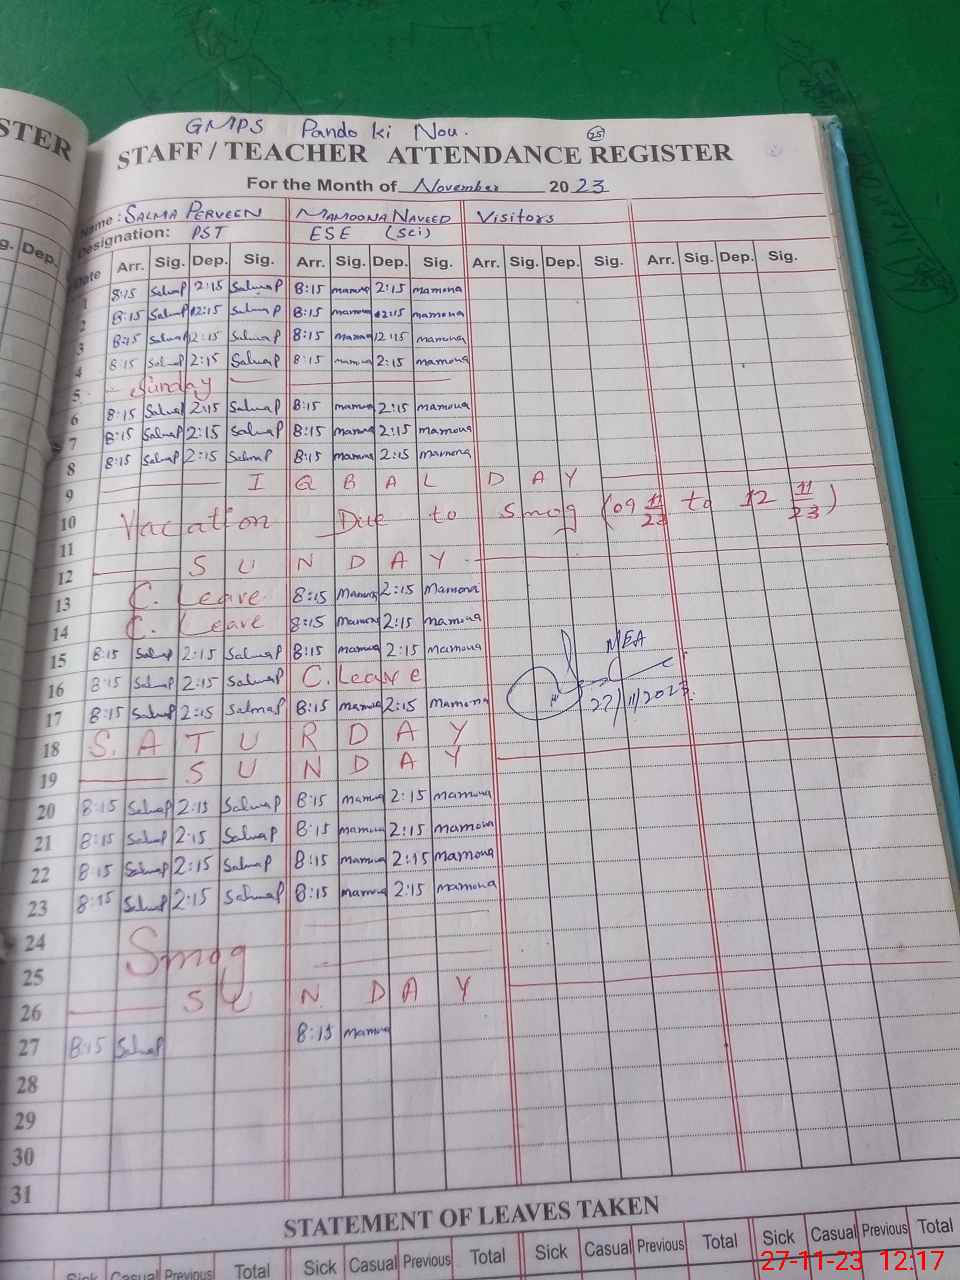 GMPS Pando ki Nou. 25
STER
STAFF / TEACHER ATTENDANCE REGISTER
For the Month of November 2023
Name: SALMA PERVEEN MAMOONA NAVEED Visitors
Designation: PST ESE (Sci)
g. Dep. Date Arr. Sig. Dep. Sig. Arr. Sig. Dep. Sig. Arr. Sig. Dep. Sig. Arr. Sig. Dep. Sig.
1 8:15 SalmaP 2:15 SalmaP 8:15 mamona 2:15 mamona
2 8:15 SalmaP 12:15 SalmaP 8:15 mamona 12:15 mamona
3 8:15 SalmaP 12:15 SalmaP 8:15 mamona 12:15 mamona
4 8:15 SalmaP 2:15 SalmaP 8:15 mamona 2:15 mamona
5 Sunday
6 8:15 SalmaP 2:15 SalmaP 8:15 mamona 2:15 mamona
7 8:15 SalmaP 2:15 SalmaP 8:15 mamona 2:15 mamona
8 8:15 SalmaP 2:15 SalmaP 8:15 mamona 2:15 mamona
9 IQBAL DAY
10 Vacation Due to Smog (09 11/23 to 12 11/23)
11
12 SUNDAY
13 C. Leave 8:15 Mamona 2:15 Mamona
14 C. Leave 8:15 Mamona 2:15 mamona
15 8:15 SalmaP 2:15 SalmaP 8:15 mamona 2:15 mamona
16 8:15 SalmaP 2:15 SalmaP C. Leave
17 8:15 SalmaP 2:15 SalmaP 8:15 mamona 2:15 mamona
MEA
27/11/2023
18 SATURDAY
19 SUNDAY
20 8:15 SalmaP 2:15 SalmaP 8:15 mamona 2:15 mamona
21 8:15 SalmaP 2:15 SalmaP 8:15 mamona 2:15 mamona
22 8:15 SalmaP 2:15 SalmaP 8:15 mamona 2:15 mamona
23 8:15 SalmaP 2:15 SalmaP 8:15 mamona 2:15 mamona
24 Smog
25
26 SUNDAY
27 8:15 SalmaP 8:15 mamona
28
29
30
31
STATEMENT OF LEAVES TAKEN
Sick Casual Previous Total Sick Casual Previous Total Sick Casual Previous Total Sick Casual Previous Total
27-11-23 12:17